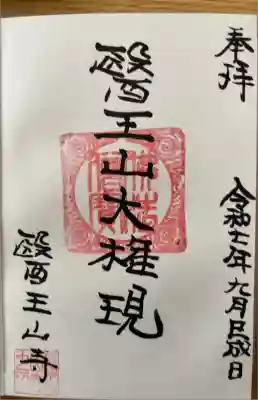 奉拝
令和七年九月吉成日
醫王山大権現
醫王山寺